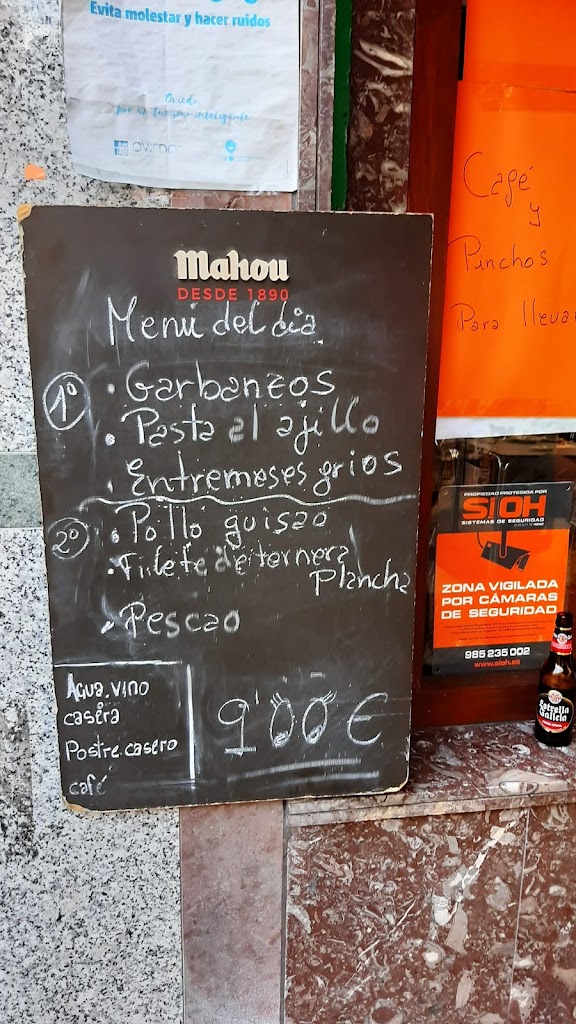 Evita molestar y hacer ruidos
Oviedo
por un turismo inteligente
OVIEDO
Mahou
DESDE 1890
Menú del dia
1º
· Garbanzos
· Pasta al ajillo
· Entremeses grios
2º
· Pollo guisao
· Filete de ternera
Plancha
· Pescao
Agua, vino
casera
Postre casero
café
9'00 €
Café
y
Pinchos
Para lleva
PROPIEDAD PROTEGIDA POR
SIOH
SISTEMAS DE SEGURIDAD
ZONA VIGILADA
POR CÁMARAS
DE SEGURIDAD
985 235 002
www.sioh.es
Estrella
Galicia